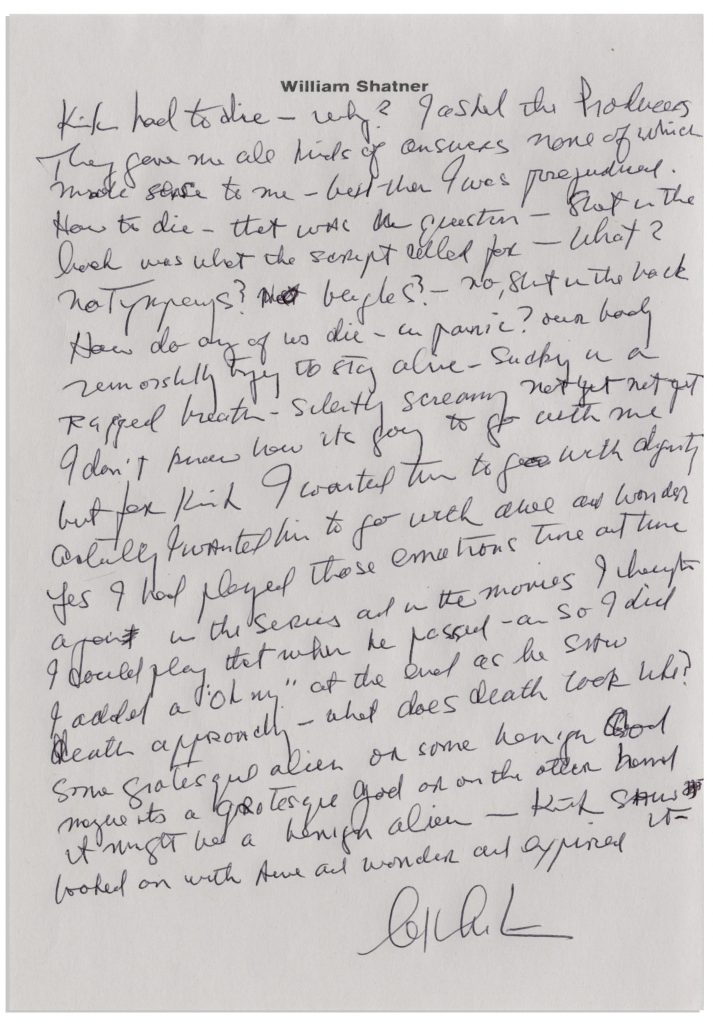 William Shatner
Kirk had to die – why? I asked the Producers
They gave me all kinds of answers none of which
made sense to me – but then I was prejudiced.
How to die – that was the question – Shot in the
back was what the script called for – What?
No Tympanys? No bugles? – no, Shot in the back
How do any of us die – in panic? our body
trying to stay alive – Sucking in a
Ragged breath – Silently screaming not yet not yet
I don't know how its going to go with me
but for Kirk I wanted him to go with dignity
actually I wanted him to go with awe and wonder
Yes I had played those emotions time and time
again in the series and in the movies I thought
I could play that when he passed – an So I did
I added a "Oh my" at the end as he saw
death approach – what does death look like?
Some grotesque alien or some benign God
maybe its a grotesque God or on the other hand
it might be a benign alien – Kirk SAW it –
looked on with awe and wonder and expired